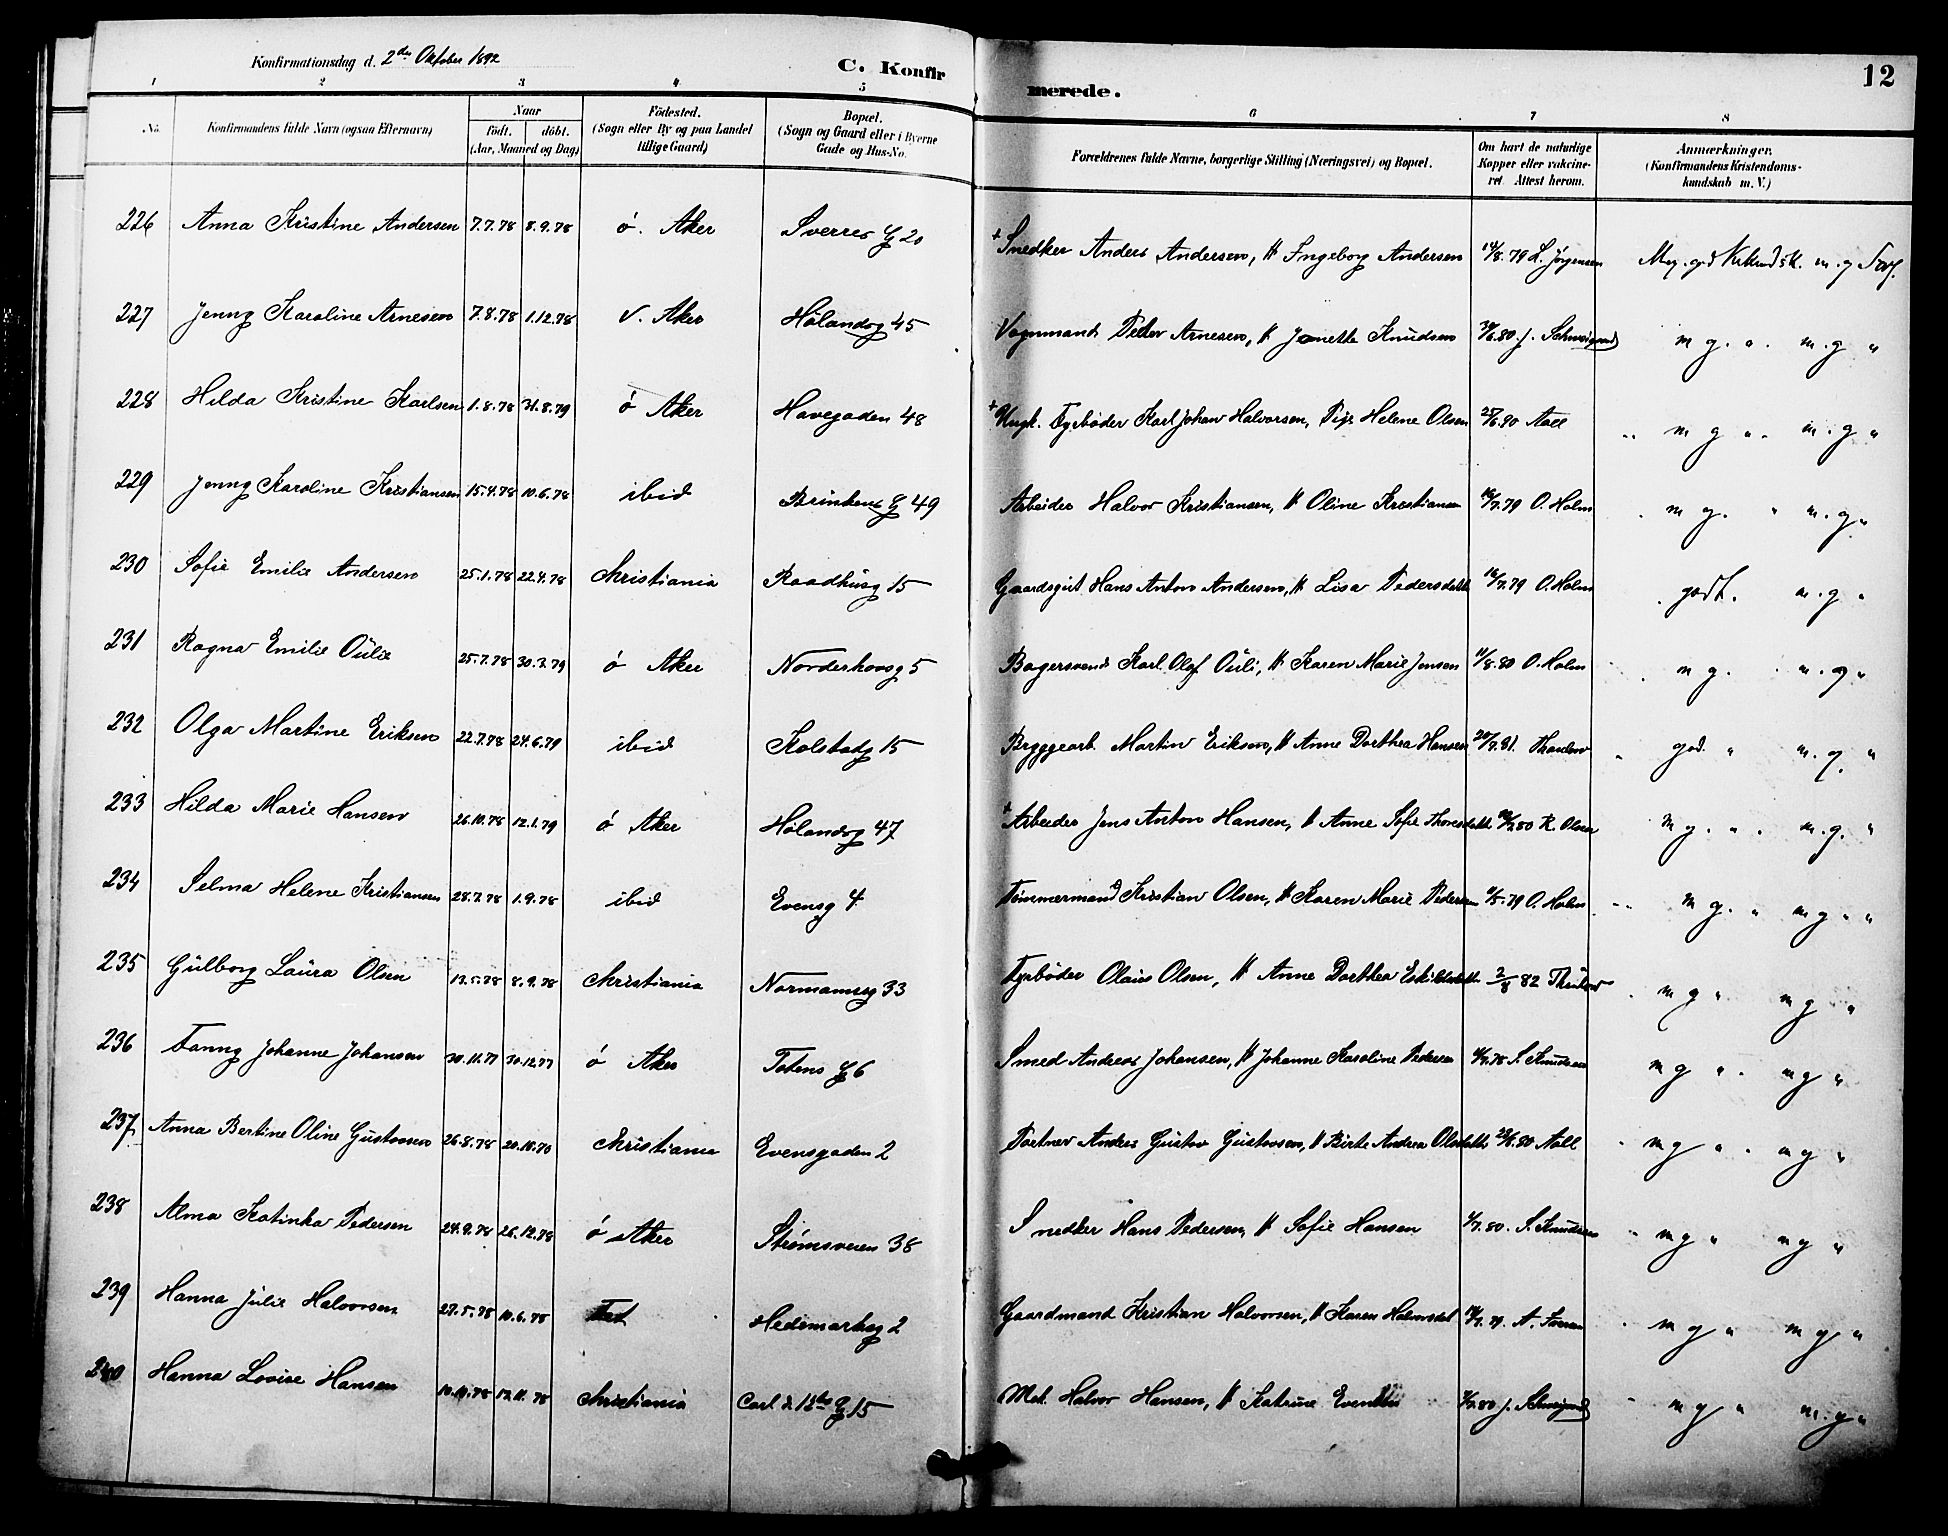 Konfirmationsdag d. 2den Oktober 1892
C. Konfir
merede.
12
1 2 3 4 5 6 7 8
No.
Konfirmandens fulde Navn (ogsaa Efternavn)
Naar
födt. döbt.
(Aar, Maaned og Dag)
Födested.
(Sogn eller By og paa Landet
tillige Gaard)
Bopæl.
(Sogn og Gaard eller i Byerne
Gade og Hus-No.
Forældrenes fulde Navne, borgerlige Stilling (Næringsvei) og Bopæl.
Om havt de naturlige
Kopper eller vakcine-
ret Attest herom.
Anmærkninger.
(Konfirmandens Kristendoms-
kundskab m. V.)
226 Anna Kristine Andersen 7.7.78 8.9.78 ö. Aker Sverres G 20 + Snedker Anders Andersen, H Ingeborg Andersen 14/8.79 L. Jörgensen Meg. god m. g
227 Jenny Karoline Arnesen 7.8.78 1.12.78 V. Aker Hölandsg 45 Vognmand Peder Arnesen, H Jonette Knudsen m g. " . m. g "
228 Hilda Kristine Karlsen 1.8.78 31.8.79 ö Aker Havegaden 48 + Ungk. Fyrböder Karl Johan Halvorsen, Pige Helene Olsen Aall " m g " . m. g "
229 Jenny Karoline Kristiansen 15.4.78 10.6.78 ibid Brinkens G 49 Arbeider Halvor Kristiansen, H Oline Kristiansen 16/7.79 O. Holm . m g. " m. g "
230 Sofie Emilie Andersen 25.1.78 22.4.78 Christiania Raadhusg 15 Gaardsgut Hans Anton Andersen, H Lisa Pedersdatter 16/7.79 O. Holm . godt. m. g "
231 Ragna Emilie Oulie 25.7.78 30.3.79 ö Aker Norderhovsg 5 Bagersvend Karl Olof Ouli, H Karen Marie Jensen 11/8.80 O. Holm . m g. m. g "
232 Olga Martine Eriksen 22.7.78 24.6.79 ibid Kolstadg 15 Bryggearb. Martin Eriksen, H Anne Dorthea Hansen . god. " m. g. "
233 Hilda Marie Hansen 26.10.78 12.1.79 ö Aker Hölandsg 47 + Arbeider Jens Anton Hansen, H Anne Sofie Thoresdatter K. Olsen m g. " . m. g. "
234 Selma Helene Kristiansen 28.7.78 1.9.78 ibid Evensg 4 Tömmermand Kristian Olsen, H Karen Marie Pedersen O. Holm m g. " m g " "
235 Gulborg Laura Olsen 13.5.78 8.9.78 Christiania Normannsg 33 Fyrböder Olaus Olsen, H Anne Dorthea Eskildsdatter 2/8 82 . m g " m g "
236 Fanny Johanne Johansen 30.11.77 30.12.77 ö Aker Totens G 6 Smed Andreas Johansen, H Johanne Karoline Pedersen S. Knudsen m g " . m g "
237 Anna Bertine Oline Gustavsen 26.8.78 20.10.70 Christiania Evensgaden 2 Portner Anders Gustav Gustavsen, H Birte Andrea Olsdatter Aall . m g " . m g "
238 Alma Katinka Pedersen 24.9.78 26.12.78 ö Aker Strömsveien 38 Snedker Hans Pedersen, H Sofie Hansen S. Knudsen " m g " m g "
239 Hanna Julie Halvorsen 27.5.78 10.6.78 Fet Hedemarksg 2 Gaardmand Kristian Halvorsen, H Karen . m g " m g "
240 Hanna Lovise Hansen 17.11.78 Christiania Carl d. 12te G 15 Halvor Hansen, H Katrine " m g " m. g "